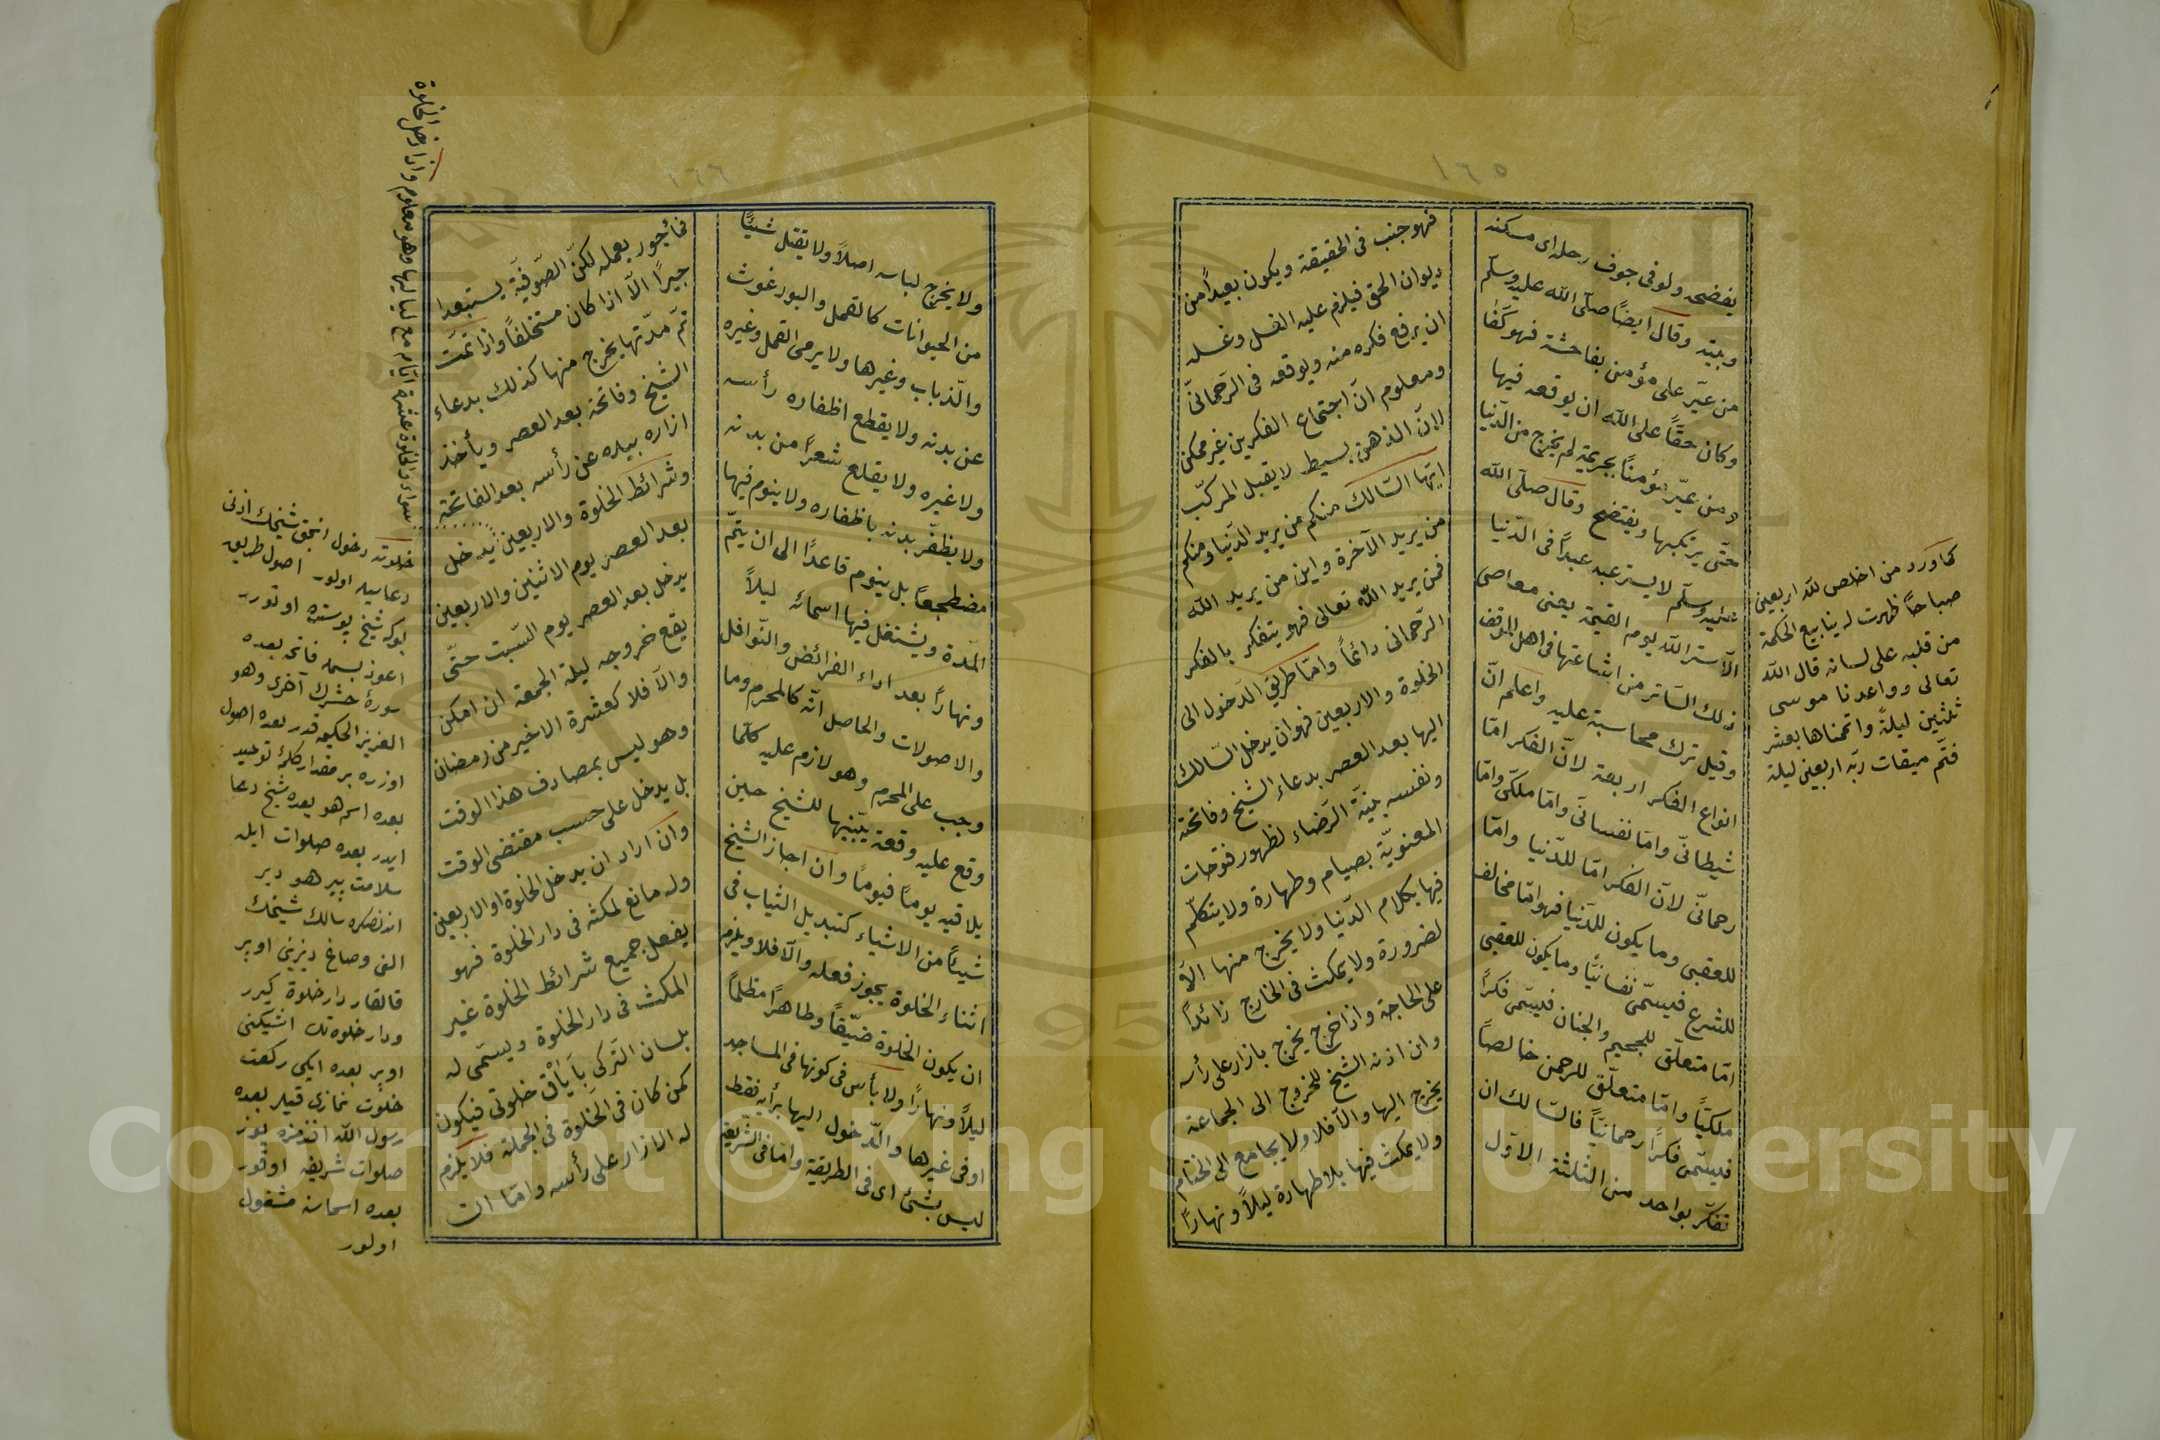 ١٦٥
يفضحه ولو فى جوف رحله اى مسكنه
وبيته وقال ايضًا صلّى الله عليه وسلّم
من عيّر على مؤمن بفاحشة فهو كَفّا
وكان حقًّا على الله ان يوقعه فيها
ومن عيّر مؤمنًا بجريمة لم يخرج من الدّنيا
حتّى يرتكبها ويفتضح وقال صلّى الله
عليه وسلّم لا يستر عبد عبدًا فى الدّنيا
الّا ستر الله يوم القيمة يعنى معاصى
ذلك السّاتر من اشاعتها فى اهل الموقف
وقيل ترك محاسبة عليه واعلم انّ
انواع الفكر اربعة لانّ الفكر امّا
شيطانّى وامّا نفسانّى وامّا ملكّى وامّا
رحمانّى لانّ الفكر امّا للدّنيا وامّا
للعقبى وما يكون للدّنيا فهو امّا مخالف
للشرع فيسمّى نفسانيًّا وما يكون للعقبى
امّا متعلّق للجحيم والجنان فيسمّى فكرًا
ملكيًّا وامّا متعلّق للرحمن خالصًا
فيسمّى فكرًا رحمانيًّا فالسّالك ان
تفكّر بواحد من الثلثة الاوّل
فهو جنب فى الحقيقة ويكون بعيدًا من
ديوان الحق فيلزم عليه الغسل وغسله
ان يرفع فكره منه ويوقعه فى الرّحمانّى
ومعلوم انّ اجتماع الفكرين غير ممكن
لانّ الذهن بسيط لا يقبل المركّب
ايّها السّالك منكم من يريد الدّنيا ومنكم
من يريد الآخرة واين من يريد الله
فمن يريد الله تعالى فهو يتفكر بالفكر
الرّحمانى دائمًا وامّا طريق الدّخول الى
الخلوة والاربعين فهو ان يدخل السّالك
اليها بعد العصر بدعاء الشيخ وفاتحة
ونفسه بنيّة الرّضاء لظهور فتوحات
المعنويّة بصيام وطهارة ولا يتكلّم
فيها بكلام الدّنيا ولا يخرج منها الّا
لضرورة ولا يمكث فى الخارج زائدًا
على الحاجة واذا خرج يخرج بازار على رأسه
وان اذنه الشيخ للخروج الى الجماعة
يخرج اليها والّا فلا ولا يجامع الى الختام
ولا يمكث فيها بلا طهارة ليلًا ونهارًا
كما ورد من اخلص لله اربعين
صباحًا ظهرت له ينابيع الحكمة
من قلبه على لسانه قال الله
تعالى وواعدنا موسى
ثلثين ليلةً واتممناها بعشر
فتمّ ميقات ربّه اربعين ليلة
١٦٦
ولا يخرج لباسه اصلًا ولا يقتل شيئًا
من الحيوانات كالقمل والبورغوث
والذّباب وغيرها ولا يرمى القمل وغيره
عن بدنه ولا يقطع اظفاره رأسه
ولا غيره ولا يقلع شعرًا من بدنه
ولا يظفّر بدنه باظفاره ولا ينوم فيها
مضطجعًا بل ينوم قاعدًا الى ان يتمّ
المدّة ويشتغل فيها اسمائه ليلًا
ونهارًا بعد اداء الفرائض والنّوافل
والاصولات والحاصل انّه كالمحرم وما
وجب على المحرم وهو لازم عليه كلّما
وقع عليه وقعة يبيّنها للشيخ حين
يلاقيه يومًا فيومًا وان اجاز الشيخ
شيئًا من الاشياء كتبديل الثياب فى
اثناء الخلوة يجوز فعله والّا فلا ويلزم
ان يكون الخلوة ضيّقًا وطاهرًا مظلمًا
ليلًا ونهارًا ولا بأس فى كونها فى المساجد
او فى غيرها والدّخول اليها برأيه فقط
ليس بشئ اى فى الطريقة وامّا فى الشريعة
فمأجور بعمله لكنّ الصّوفيّة يستبعدا
جبرًا الّا اذا كان مستخلفًا واذا تمّت
تمّ مدّتها يخرج منها كذلك بدعاء
الشيخ وفاتحة بعد العصر ويأخذ
ازاره بيده عن رأسه بعد الفاتحة
وشرائط الخلوة والاربعين يدخل
بعد العصر يوم الاثنين والاربعين
يدخل بعد العصر يوم السّبت حتّى
يقع خروجه ليلة الجمعة ان امكن
والّا فلا كعشرة الاخير من رمضان
وهو ليس بمصادف هذا الوقت
بل يدخل على حسب مقتضى الوقت
وان اراد ان يدخل الخلوة او الاربعين
وله مانع لمكثه فى دار الخلوة فهو
يفعل جميع شرائط الخلوة غير
المكث فى دار الخلوة ويسمّى له
بلسان التّركى باياق خلوتى فيكون
كمن كان فى الخلوة فى الجملة فلا يلزم
له الازار على رأسه وامّا الت
سواء والخلوة عشرة ايّام مع لياليها وهو معلوم واذا دخل الخلوة
خلوته دخول انجق شيخك اذنى
دعاسيله اولور اصول طريق
بوكه شيخ پوستده اوتورر
اعوذ بسمله فاتحه بعده
سورۀ حشرك آخرى وهو
العزيز الحكيمه قدر بعده اصول
اوزره بر مقدار كلمۀ توحيد
بعده اسم هو بعده شيخ دعا
ايدر بعده صلوات ايله
سلامت بير هو دير
اندنصكره سالك شيخك
الين وصاغ ديزينى اوپر
قالقار دار خلوة كيرر
ودار خلوه نك اشيكنى
اوپر بعده ايكى ركعت
خلوت نمازى قيلر بعده
رسول الله افنديمزه يوز
صلوات شريفه اوقور
بعده اسمائه مشغول
اولور
Copyright © King Saud University